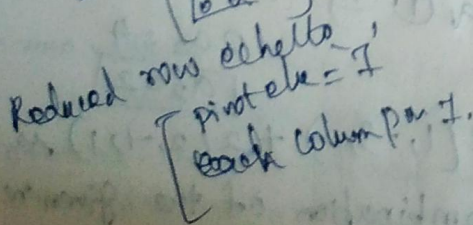 Reduced row echello
pivot ele = 1
each colum p 1.